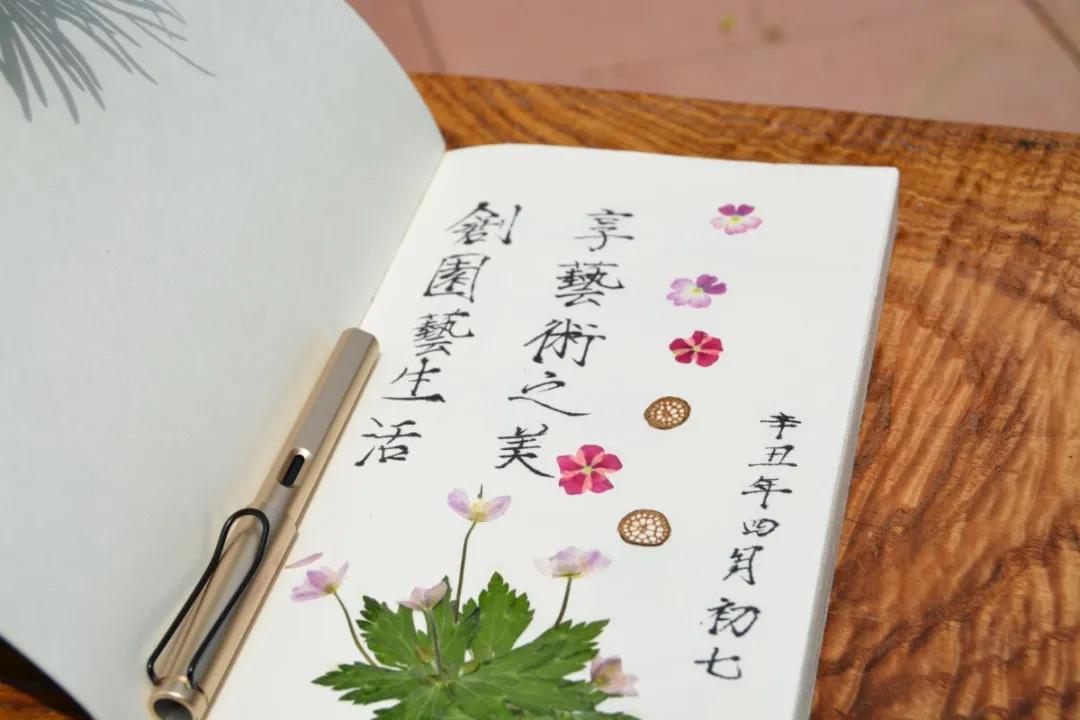 創園藝生活
享藝術之美
辛丑年四月初七